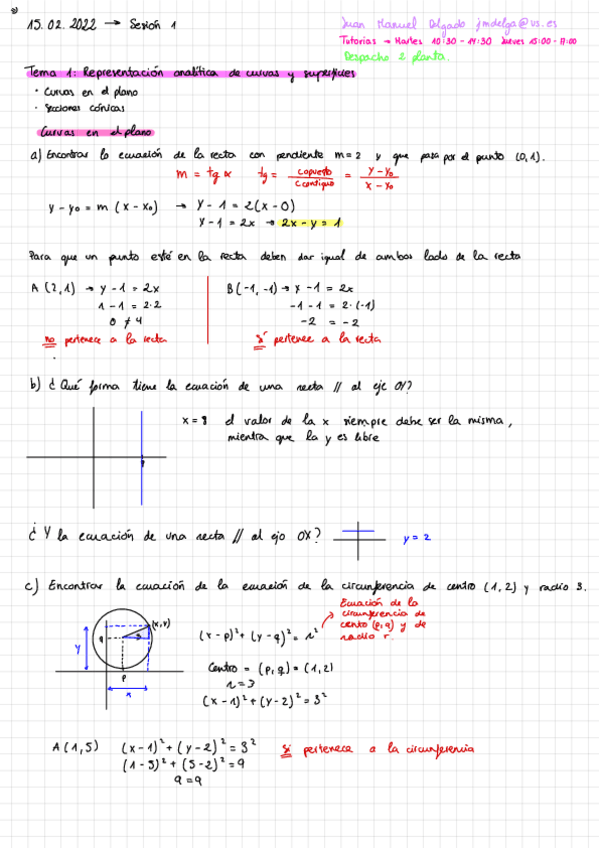 15.02.2022 → Sesión 1
Juan Manuel Delgado jmdelga@us.es
Tutorias → Martes 10:30 - 14:30 Jueves 15:00 - 17:00
Despacho 2 planta.
Tema 1: Representación analítica de curvas y superficies
· Curvas en el plano
· Secciones cónicas
Curvas en el plano
a) Encontrar la ecuación de la recta con pendiente m = 2 y que pasa por el punto (0,1).
m = tg α tg = copuesto / c contiguo = y - y₀ / x - x₀
y - y₀ = m (x - x₀) → y - 1 = 2(x - 0)
y - 1 = 2x → 2x - y = 1
Para que un punto esté en la recta deben dar igual de ambos lados de la recta
A (2,1) → y - 1 = 2x
1 - 1 = 2·2
0 ≠ 4
no pertenece a la recta
B (-1,-1) → y - 1 = 2x
-1 - 1 = 2·(-1)
-2 = -2
sí pertenece a la recta
b) ¿Qué forma tiene la ecuación de una recta // al eje OY?
x = 8 el valor de la x siempre debe ser la misma,
mientra que la y es libre
¿Y la ecuación de una recta // al eje OX?
y = 2
c) Encontrar la ecuación de la ecuación de la circunferencia de centro (1,2) y radio 3.
Ecuación de la
circunferencia de
cento (p,q) y de
radio r.
(x,y)
q
y
p
x
(x - p)² + (y - q)² = r²
Centro = (p,q) = (1,2)
r = 3
(x - 1)² + (y - 2)² = 3²
A (1,5) (x - 1)² + (y - 2)² = 3² si pertenece a la circunferencia
(1 - 5)² + (5 - 2)² = 9
9 = 9